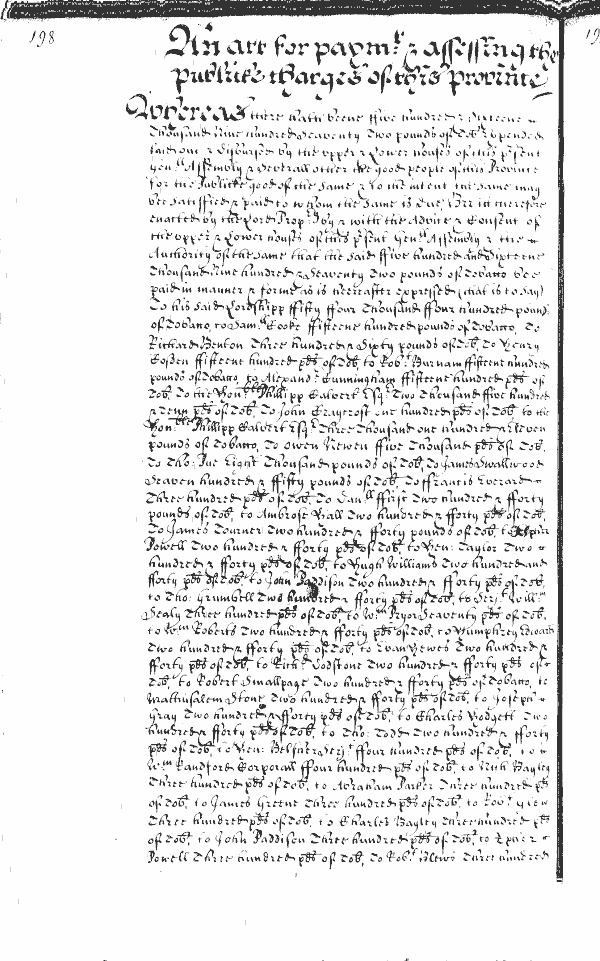 198
An act for paymt. & assessing the
publike charges of this province
Whereas there hath beene ffive hundred & sixteene
Thousand Nine hundred Seaventy Two pounds of Tob. Expended
laid out & disbursed by the upper & Lower houses of this pr̃sent
Genll. Assembly & Severall other the good people of this Province
for the Publicke good of the Same & To the intent the Same may
bee Satisfied & paid to whom the Same is Due, Bee itt therefore
enacted by the Lord Propr. by & with the Advice & Consent of
the upper & Lower houses of this pr̃sent Genll. Assembly & the
Authority of the Same that the Said ffive hundred and Sixteene
Thousand Nine hundred & Seaventy Two pounds of Tobacco bee
paid in manner & forme as is hereafter expressed (that is to Say)
To his Said Lordshipp ffifty ffour Thousand ffour hundred pounds
of Tobacco, to Saml. Cooke ffifteene hundred pounds of Tobacco, To
Richard Benton Three hundred & Sixty pounds of Tob, To Henry
ffifteene hundred pds of Tob, to Robt. Burnam ffifteene hundred
pounds of Tobacco, to Alexandr. Cunningham ffifteene hundred pds of
Tob, To the Honble. Phillipp Calvert Esqr. Two Thousand ffive hundred
& Tenn pds of Tob, To John Craycroft one hundred pds of Tob, to the
Honble. Phillipp Calvert Esqr. Three Thousand one hundred & Eleven
pounds of Tobacco, To Owen Newen ffive Thousand pds of Tob,
To Tho: Eight Thousand pounds of Tob, To James Smallwood
Seaven hundred & ffifty pounds of Tob, To ffrancis Everard
Three hundred pds of Tob, To Danll. ffirst Two hundred & fforty
pounds of Tob, to Ambrose Ball Two hundred & fforty pds of Tob,
To James Tourner Two hundred & fforty pounds of Tob, to
Powell Two hundred & fforty pds of Tob, to Hen: Taylor Two
hundred & fforty pds of Tob, to Hugh Williams Two hundred and
fforty pds of Tob, to John Paddison Two hundred & fforty pds of Tob,
to Tho: Grumbell Two hundred & fforty pds of Tob, to Serj: Willm.
Sealy Three hundred pds of Tob, to Wm. Pryor Seaventy pds of Tob,
to Wm. Roberts Two hundred & fforty pds of Tob, to Humphrey Edwards
Two hundred & fforty pds of Tob, to Evan Hewes Two hundred &
fforty pds of Tob, to Richd. Godstone Two hundred & fforty pds of
to Robert Smallpage Two hundred & fforty pds of Tobacco, to
Mathusalem Stone Two hundred & fforty pds of Tob, to Joseph
Gray Two hundred & fforty pds of Tob, to Charles Hodgett Two
hundred & fforty pds of Tob, to Tho: Todd Two hundred & fforty
pds of Tob, to Hen: Serjt. ffour hundred pds of Tob, to
Wm. Landford Corporall ffour hundred pds of Tob, to Rich Bayley
Three hundred pds of Tob, to Abraham Parker Three hundred pds
of Tob, to James Greene Three hundred pds of Tob, to Robt.
Three hundred pds of Tob, to Charles Bayley Three hundred pds
of Tob, to John Paddison Three hundred pds of Tob, to
Powell Three hundred pds of Tob, To Robt. Three hundred